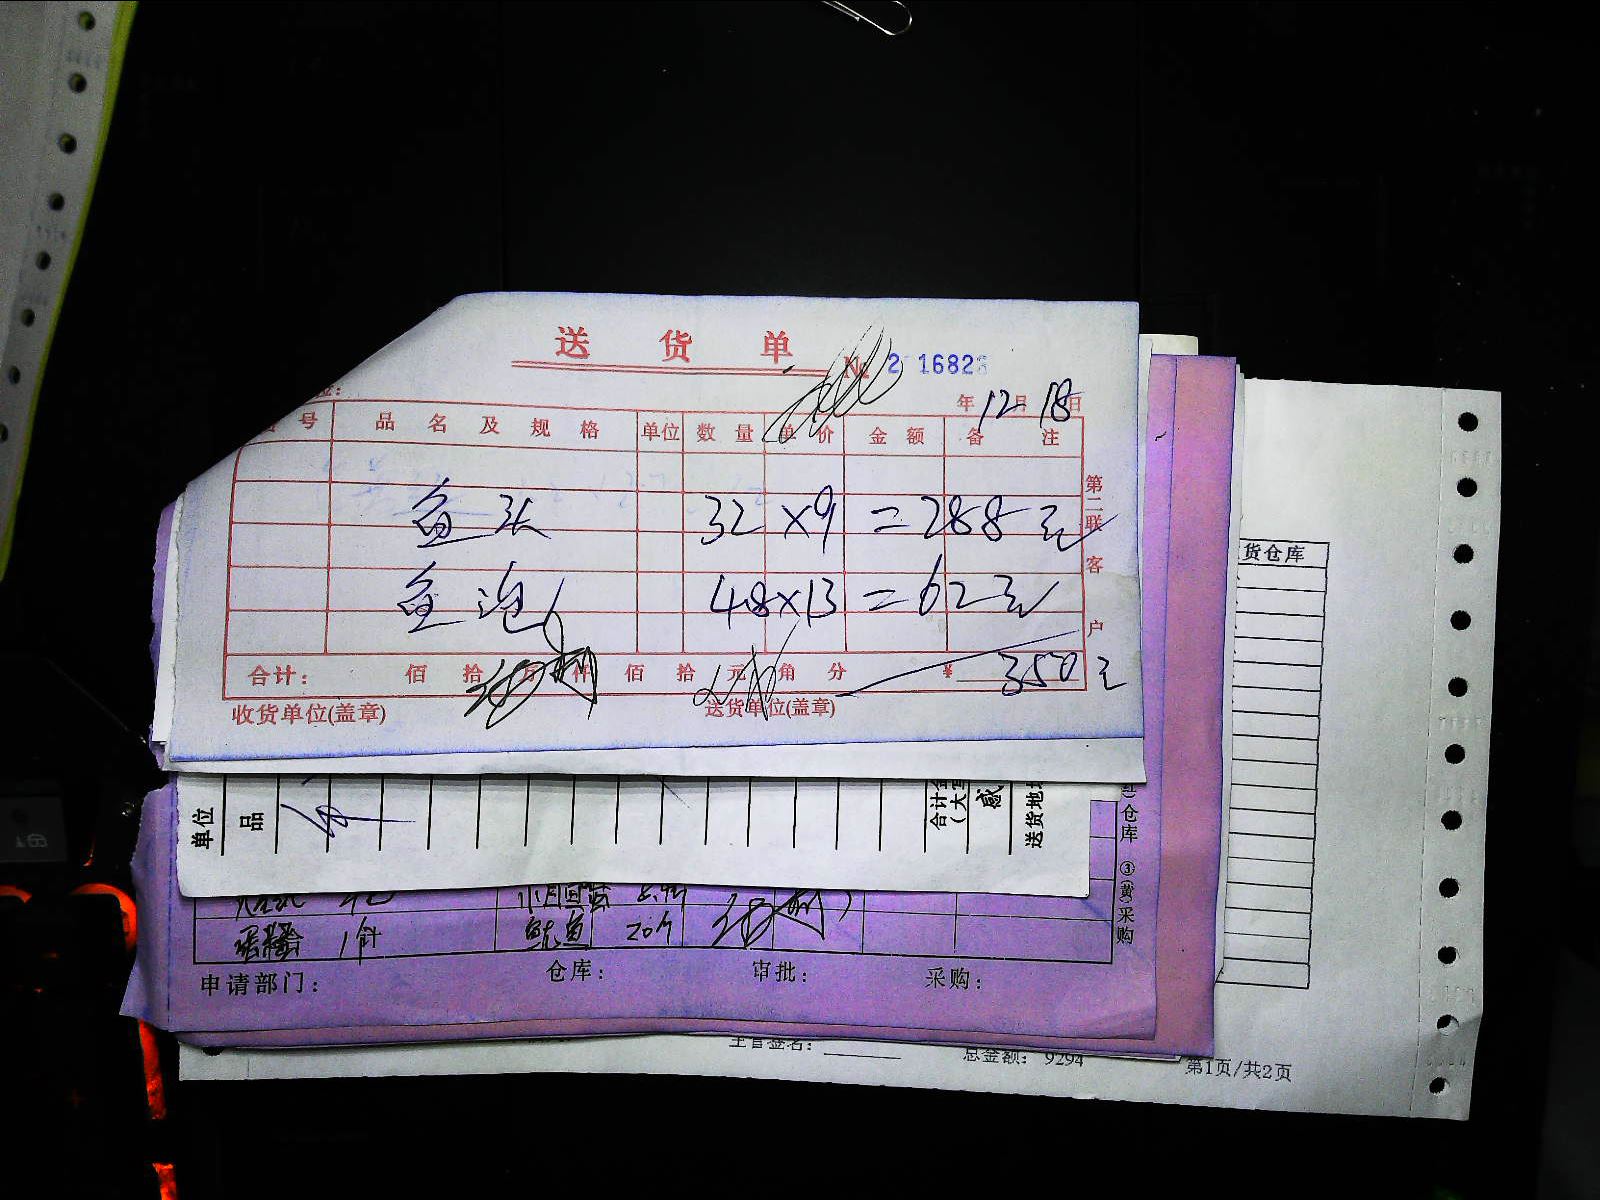 送货单
№ 2 16828
年12月18日
号 品名及规格 单位 数量 单价 金额 备注
鱼头 32×9=288元
鱼泡 48×13=62元
合计: 佰 拾 万 仟 佰 拾 元 角 分 ¥ 350元
收货单位(盖章) 送货单位(盖章)
第二联 客户
货仓库
单位
品
合计金
(大写
感
送货地址
仓库 ③(黄)采购
1斤 20个
申请部门: 仓库: 审批: 采购:
主管签名: 总金额: 9294
第1页/共2页